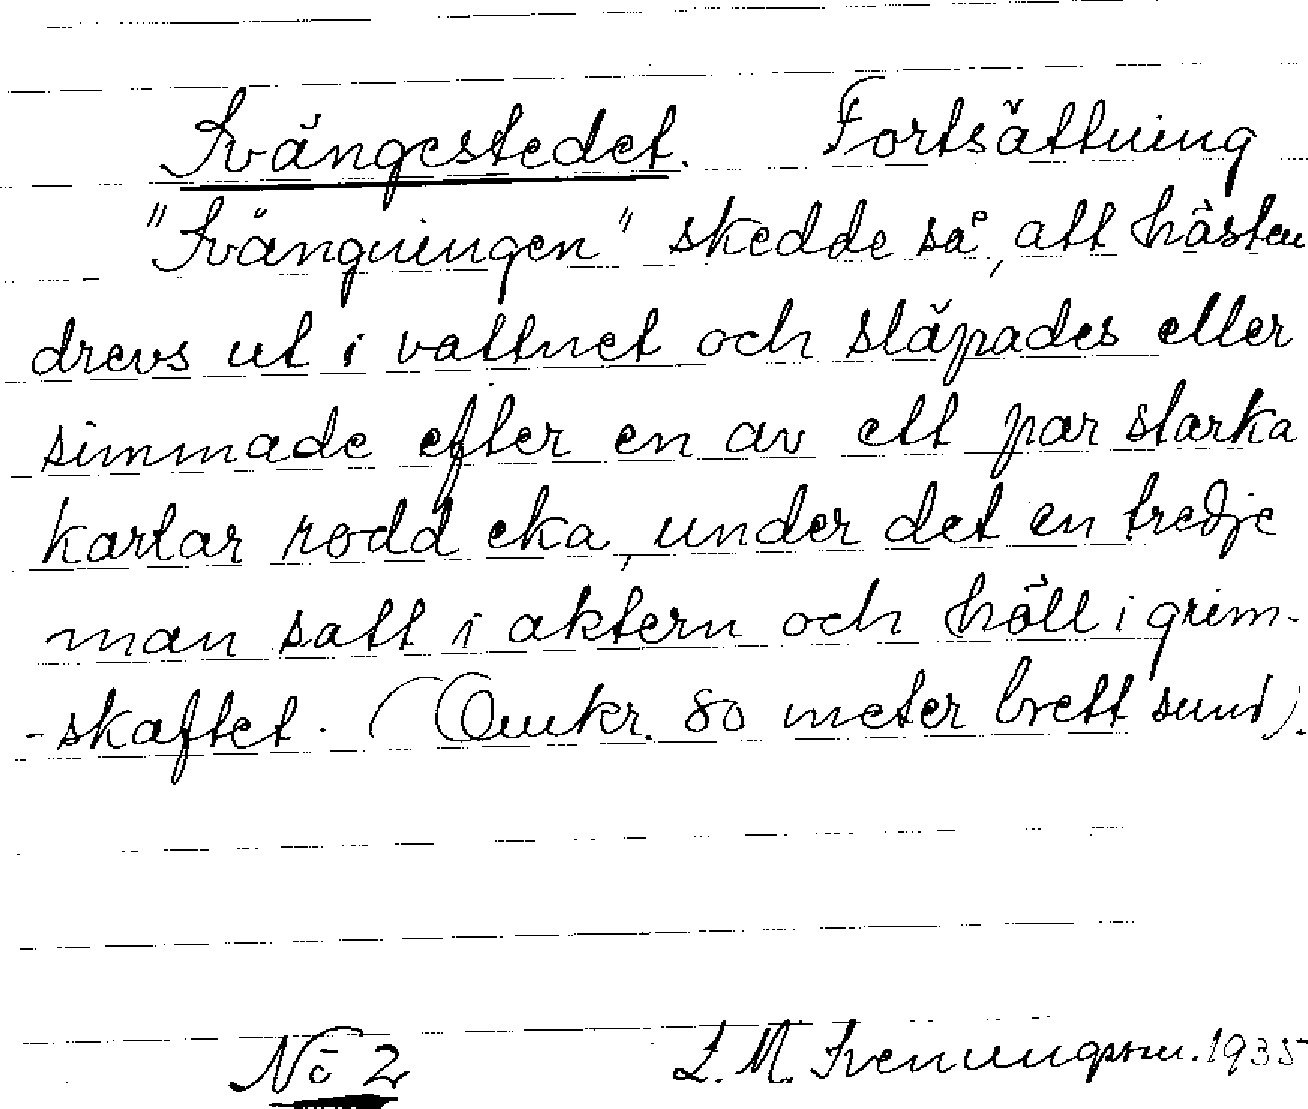 Svängestedet. Fortsättning
"Svängningen" skedde så, att hästen
drevs ut i vattnet och släpades eller
simmade efter en av ett par starka
karlar rodd eka, under det en tredje
man satt i aktern och höll i grim-
-skaftet. (Omkr. 80 meter brett sund).
No 2 L. M. Svenungsson. 1935